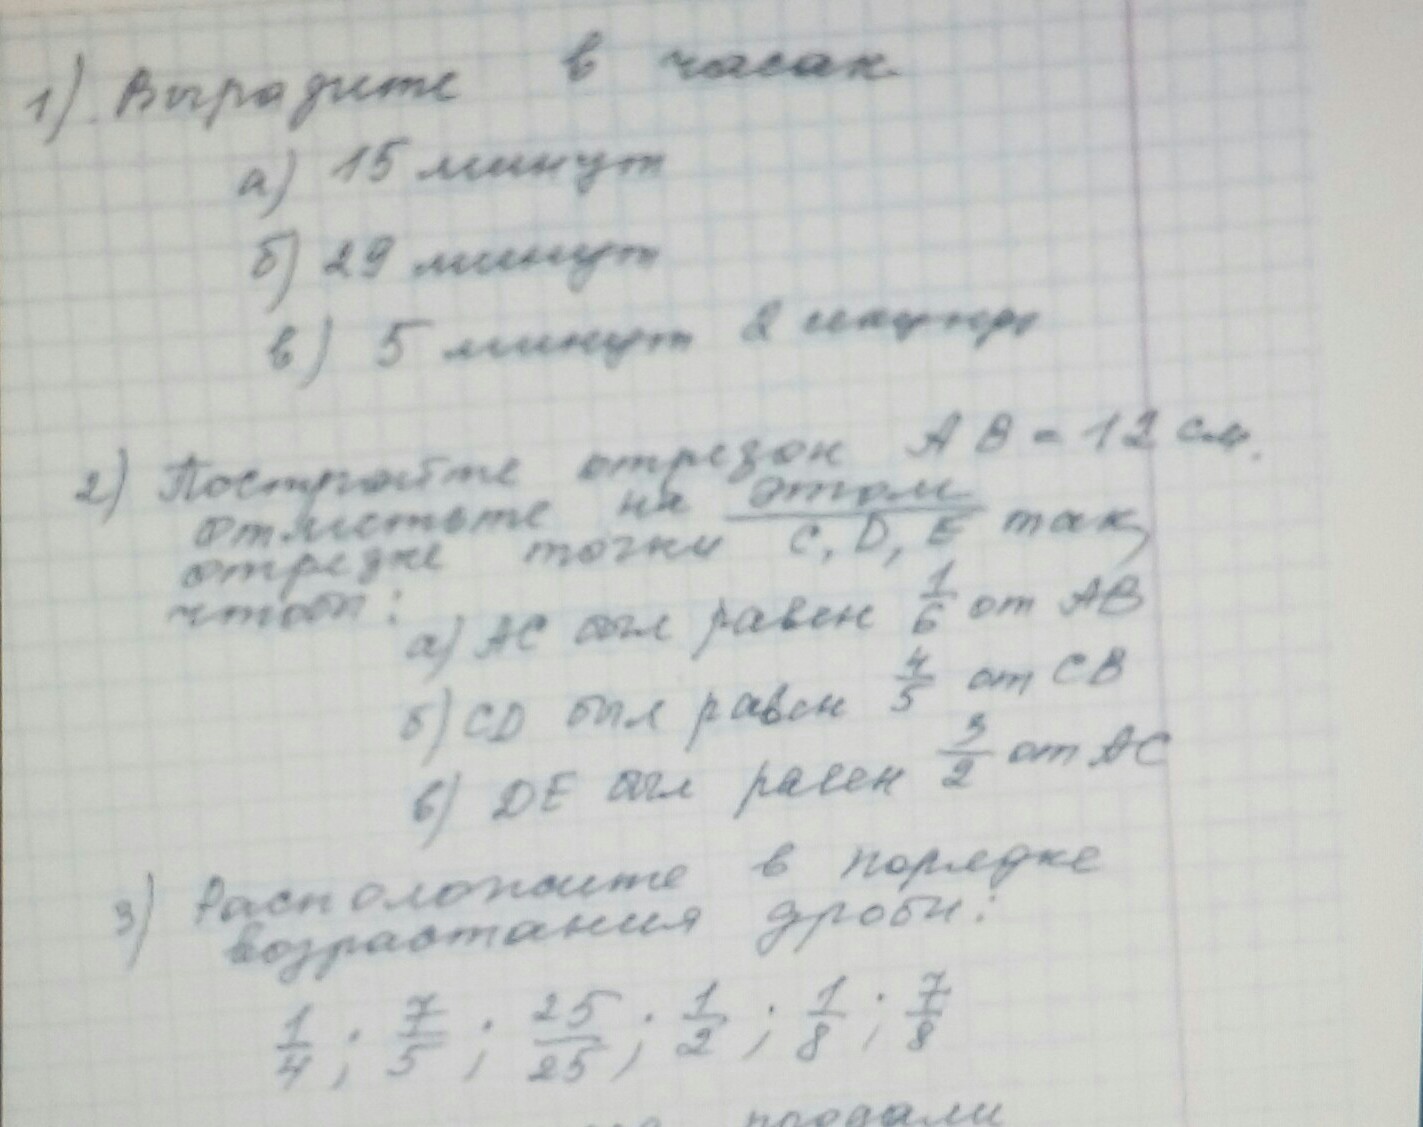 1) Выразите в часах
а) 15 минут
б) 29 минут
в) 5 минут 2 секунды
2) Постройте отрезок AB = 12 см.
отметьте на этом
отрезке точки C, D, E так,
чтобы:
а) AC был равен 1/6 от AB
б) CD был равен 4/5 от CB
в) DE был равен 3/2 от AC
3) Расположите в порядке
возрастания дроби:
1/4 ; 7/5 ; 25/25 ; 1/2 ; 1/8 ; 7/8
продали